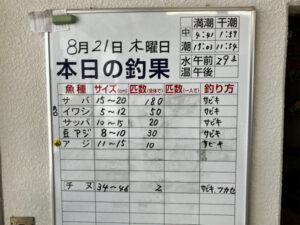 8月21日 木曜日
満潮 干潮
中 4:41 1:59
潮 15:03 11:54
本日の釣果
水温 午前 29.2
午後
魚種 サイズ(cm) 匹数(全体で) 匹数(一人で) 釣り方
サバ 15~20 180 サビキ
イワシ 5~12 50 サビキ
サッパ 10~15 20 サビキ
豆アジ 8~10 30 サビキ
アジ 11~15 10 サビキ
チヌ 34~46 2 サビキ、フカセ